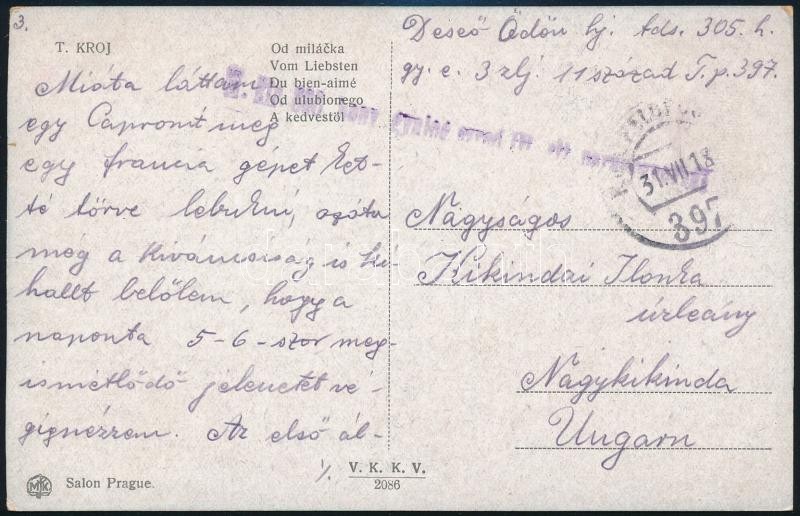 3.
T. KROJ
Od miláčka
Vom Liebsten
Du bien-aimé
Od ulubionego
A kedvestől
Deseő Ödön hj. tds. 305. h.
gy. e. 3 zlj. 11 század T.p. 397.
Mióta láttam
egy Capronit meg
egy francia gépet ket-
té törve lebukni, azóta
még a kiváncsiság is ki-
halt belőlem, hogy a
naponta 5-6-szor meg-
ismétlődő jelenetet vé-
gignézzem. Az első ál-
1/.
31.VII.18
397
Nagyságos
Kikindai Ilonka
úrleány
Nagykikinda
Ungarn
MK
Salon Prague.
V. K. K. V.
2086